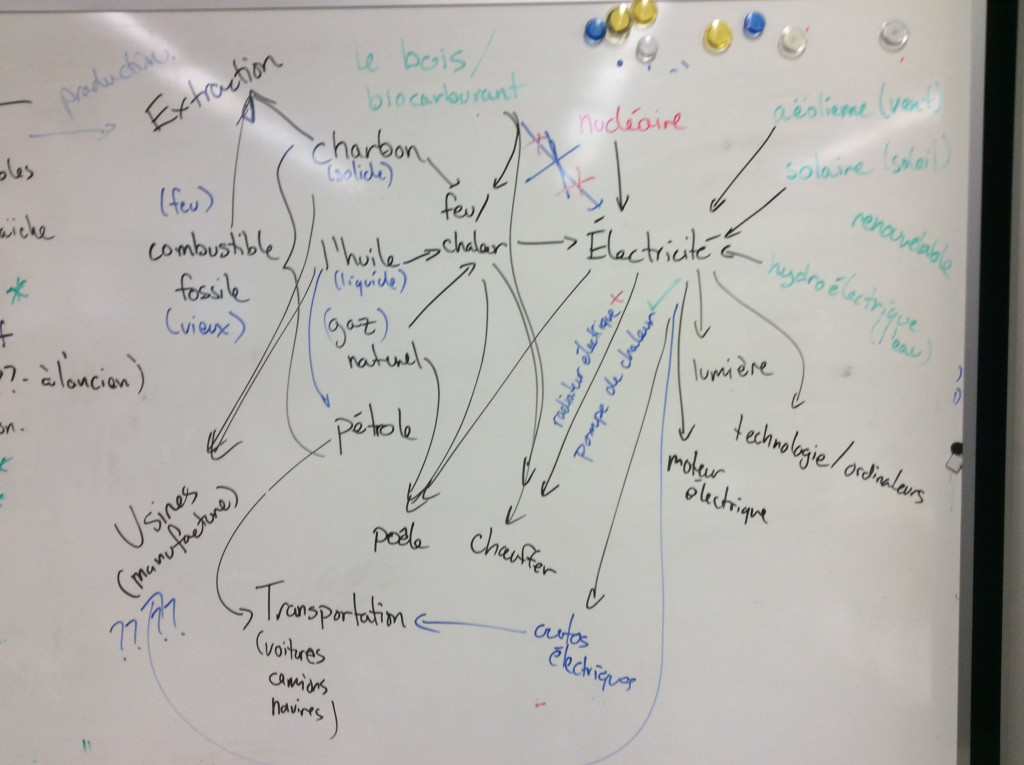 production.
Extraction
le bois/
biocarburant
nucléaire
aéolienne (vent)
solaire (soleil)
renouvelable
hydroélectrique
(l'eau)
charbon
(solide)
feu/
chaleur
Électricité
(feu)
combustible
fossile
(vieux)
l'huile
(liquide)
(gaz)
naturel
pétrole
radiateur électrique x
pompe de chaleur
lumière
technologie/ordinateurs
moteur
électrique
Usines
(manufacture)
?? ??
poêle
chauffer
Transportation
(voitures
camions
navires)
autos
électriques
aiche
*
??-à l'ancien)
on.